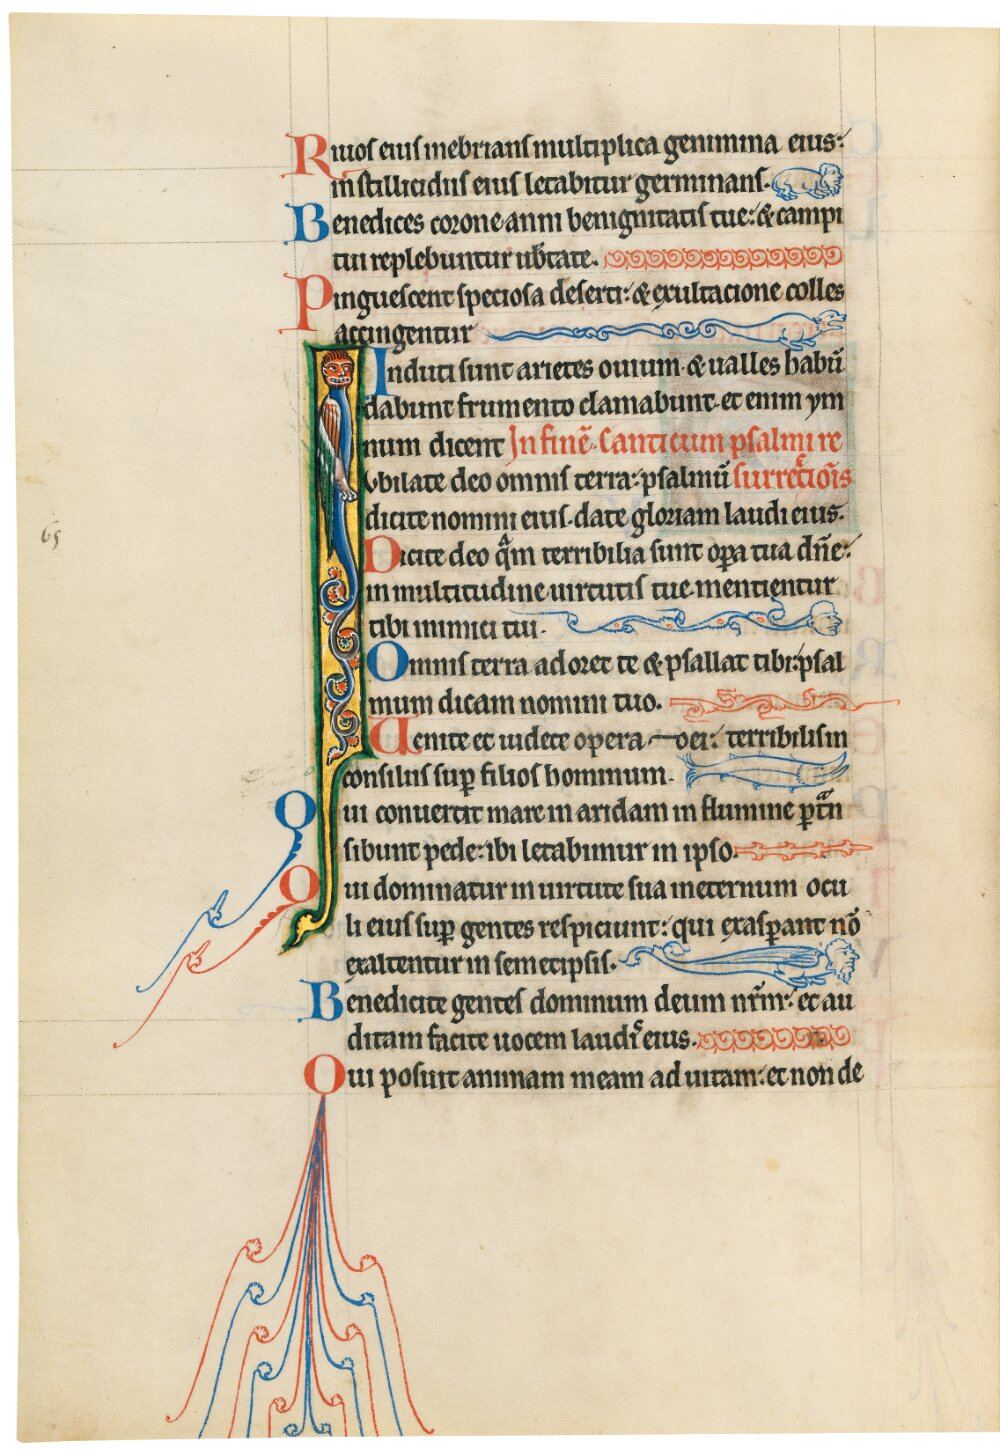 Riuos eius inebrians multiplica genimina eius:
in stillicidiis eius letabitur germinans.
Benedices corone anni benignitatis tue: & campi
tui replebuntur ub̄tate.
Pinguescent speciosa deserti: & exultacione colles
accingentur
Induti sunt arietes ouium & ualles habū
dabunt frumento clamabunt et enim ym
num dicent In finē. Canticum psalmi re
Iubilate deo omnis terra: psalmū surrectiōis
dicite nomini eius. date gloriam laudi eius.
65
Dicite deo q̄m terribilia sunt opa tua dn̄e:
in multitudine uirtutis tue mentientur
tibi inimici tui.
Omnis terra adoret te & psallat tibi: psal
mum dicam nomini tuo.
Uenite et uidete opera dei: terribilis in
consiliis sup filios hominum.
Qui conuertit mare in aridam in flumine ptᵃn
sibunt pede: ibi letabimur in ipso.
Qui dominatur in uirtute sua in eternum ocu
li eius sup gentes respiciunt: qui exaspant nō
exaltentur in semetipsis.
Benedicite gentes dominum deum nr̄m: et au
ditam facite uocem laudis eius.
Qui posuit animam meam ad uitam: et non de